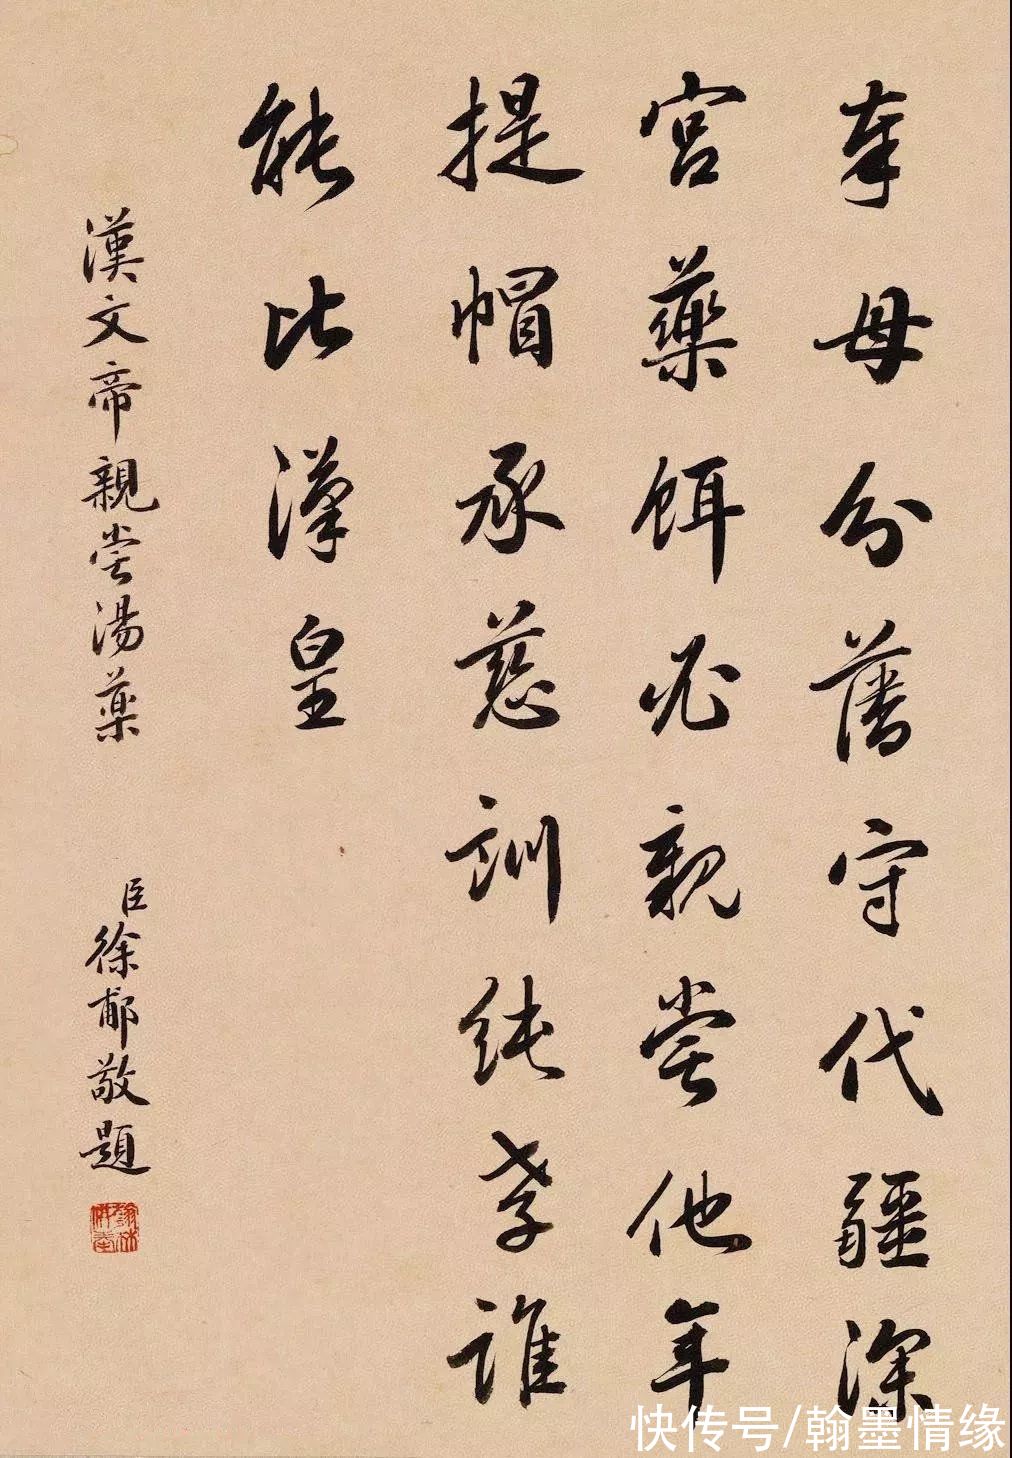 奉母分藩守代疆深
宮藥餌必親嘗他年
提帽承慈訓純孝誰
能比漢皇
漢文帝親嘗湯藥
臣徐郙敬題
快传号/翰墨情缘